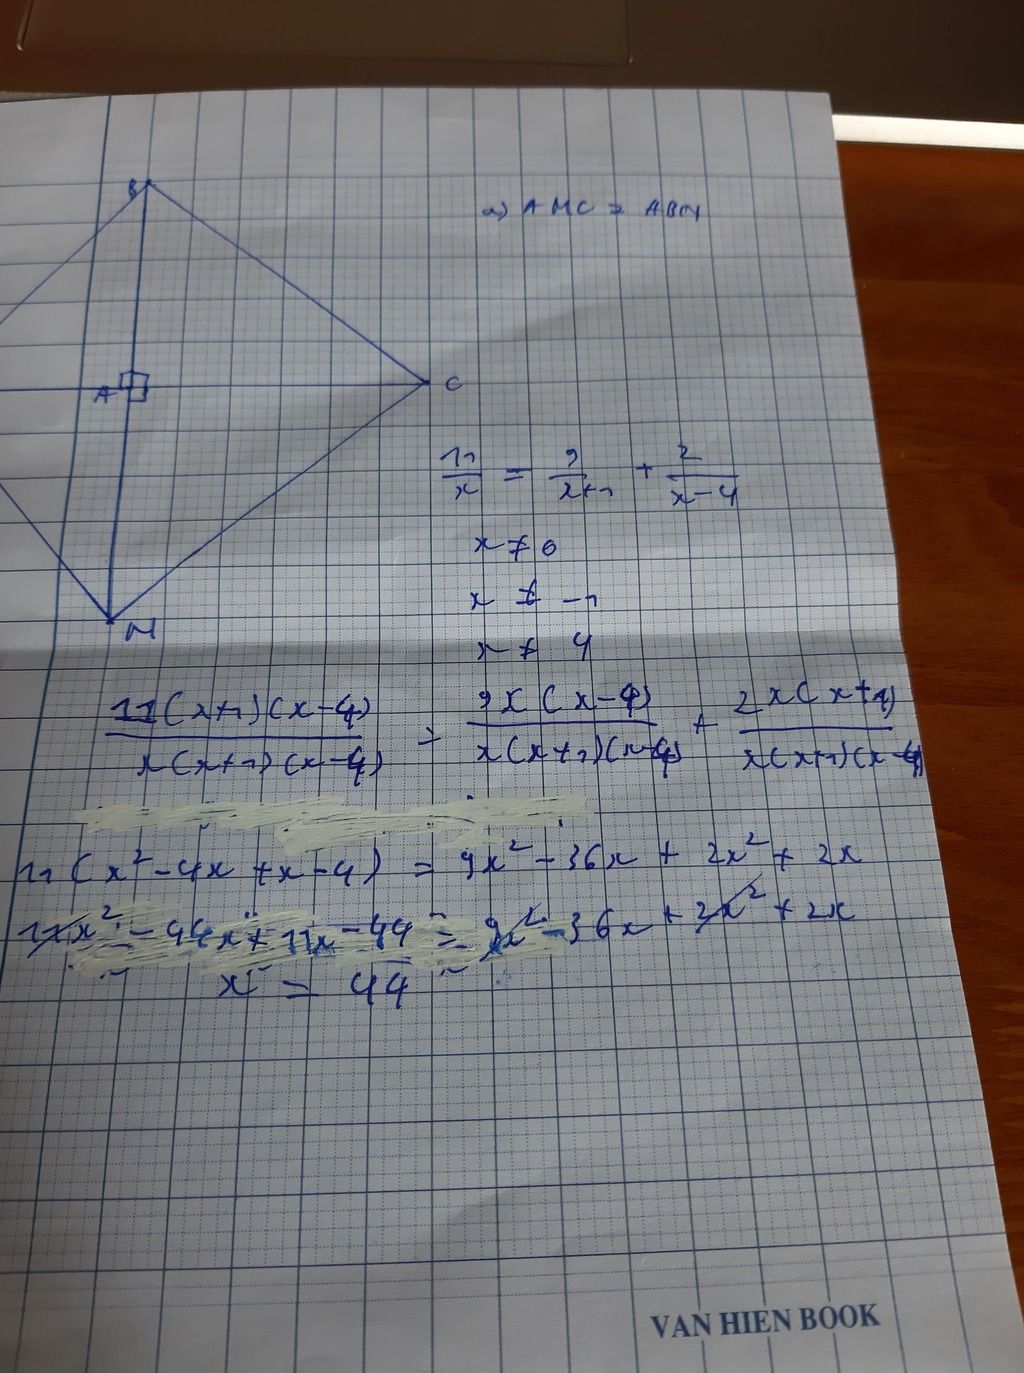 B
a) AMC = ABN
A
C
11/x = 9/x+1 + 2/x-4
x ≠ 0
x ≠ -1
x ≠ 4
M
11(x+1)(x-4)/x(x+1)(x-4) = 9x(x-4)/x(x+1)(x-4) + 2x(x+1)/x(x+1)(x-4)
11(x²-4x+x-4) = 9x²-36x+2x²+2x
11x²-44x+11x-44 = 9x²-36x+2x²+2x
x = 44
VAN HIEN BOOK